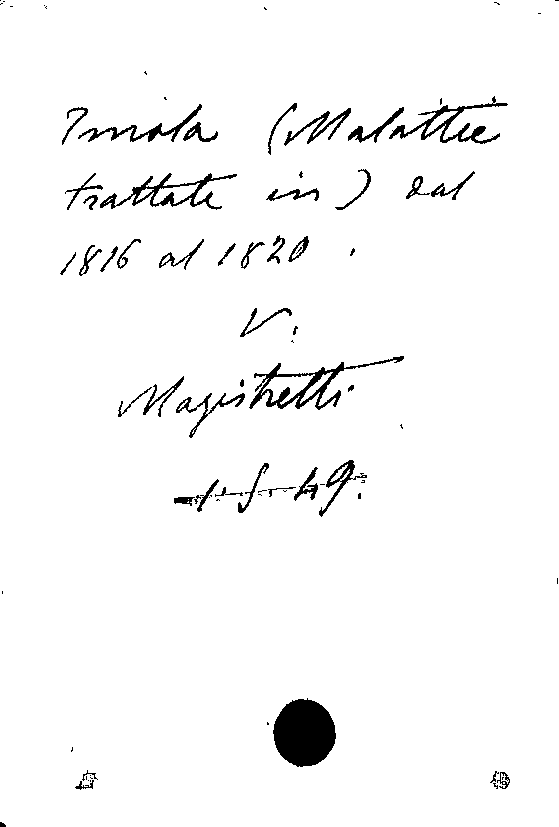 Imola (Malattie
trattate in) dal
1816 al 1820.
V.
Magistretti